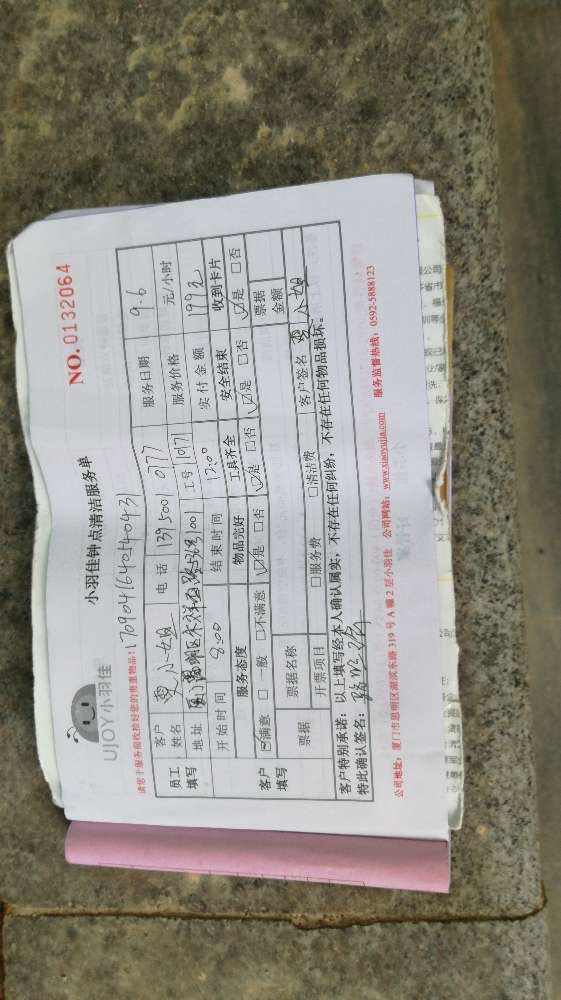 UJOY小羽佳
小羽佳钟点清洁服务单
NO. 0132064
请您于服务前收捡好您的贵重物品!
170904164054043
员工填写
客户姓名 夏小姐 电话 1395001 0777 服务日期 9.6
地址 工号 1071 服务价格 元/小时
开始时间 8:00 结束时间 12:00 实付金额 199元
客户填写
服务态度 物品完好 工具齐全 安全结束 收到卡片
☑满意 □一般 □不满意 ☑是 □否 ☑是 □否 ☑是 □否 ☑是 □否
票据 票据名称 票据金额
开票项目 □服务费 □清洁费 客户签名 夏小姐
客户特别承诺：以上填写经本人确认属实，不存在任何纠纷，不存在任何物品损坏。
特此确认签名：
公司地址：厦门市思明区湖滨东路 319 号 A 幢 2 层小羽佳 公司网站：www.xiaoyujia.com 服务监督热线：0592-5888123